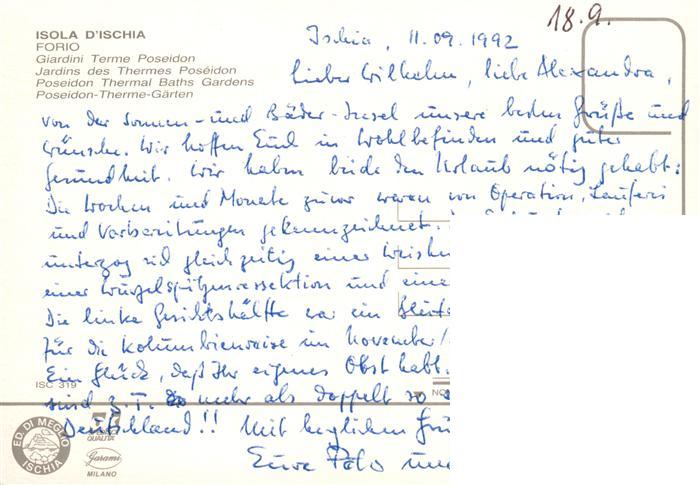 18.9.
ISOLA D'ISCHIA
FORIO
Giardini Terme Poseidon
Jardins des Thermes Poséidon
Poseidon Thermal Baths Gardens
Poseidon-Therme-Gärten
Ischia, 11.09.1992
Lieber Wilhelm, liebe Alexandra,
von der Sonnen- und Bäder-Insel unsere besten Grüße und
Wünsche. Wir hoffen Euch in Wohlbefinden und guter
Gesundheit. Wir haben beide den Urlaub nötig gehabt:
Die Wochen und Monate zuvor waren von Operation,
und Vorbereitungen gekennzeichnet.
unterzog sich gleichzeitig einer
einer Wurzelspitzenresektion und eine
Die linke Gesichtshälfte war ein
für die Kolumbienreise im November/
Ein Glück, daß Ihr eigenes Obst habt.
ISC 319
sind z.T. mehr als doppelt so
Deutschland!! Mit herzlichen Grü
Eure Polo und
ED. DI MEGLIO
ISCHIA
QUALITÀ
Garami
MILANO
NO